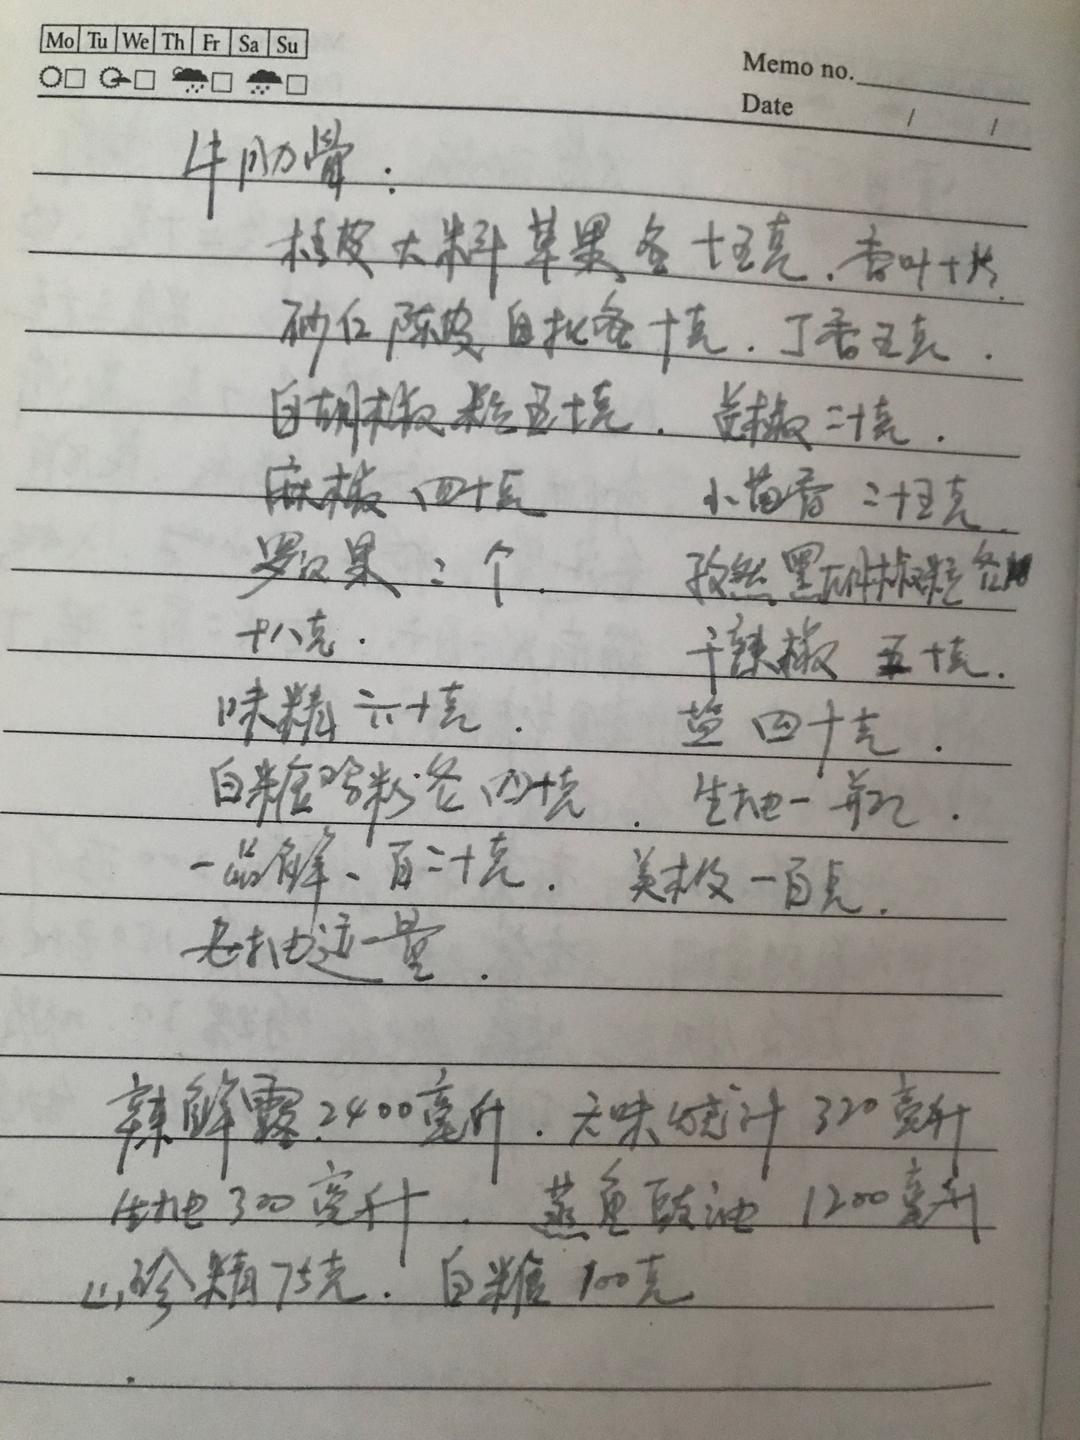 Mo Tu We Th Fr Sa Su
Memo no.
Date / /
牛肋骨：
桂皮大料草果各十五克.香叶十片.
砂仁陈皮白扣各十克.丁香五克.
白胡椒粒五十克.花椒二十克.
麻椒四十克 小茴香二十五克.
罗汉果二个. 孜然黑胡椒粒各
十八克. 干辣椒五十克.
味精六十克. 盐四十克.
白糖鸡粉各四十克. 生抽一瓶.
一品鲜、百二十克. 美极一百克.
老抽适量.
辣鲜露2400毫升.老味烧汁320毫升
生抽300毫升. 蒸鱼豉油1200毫升
山珍精75克. 白糖100克